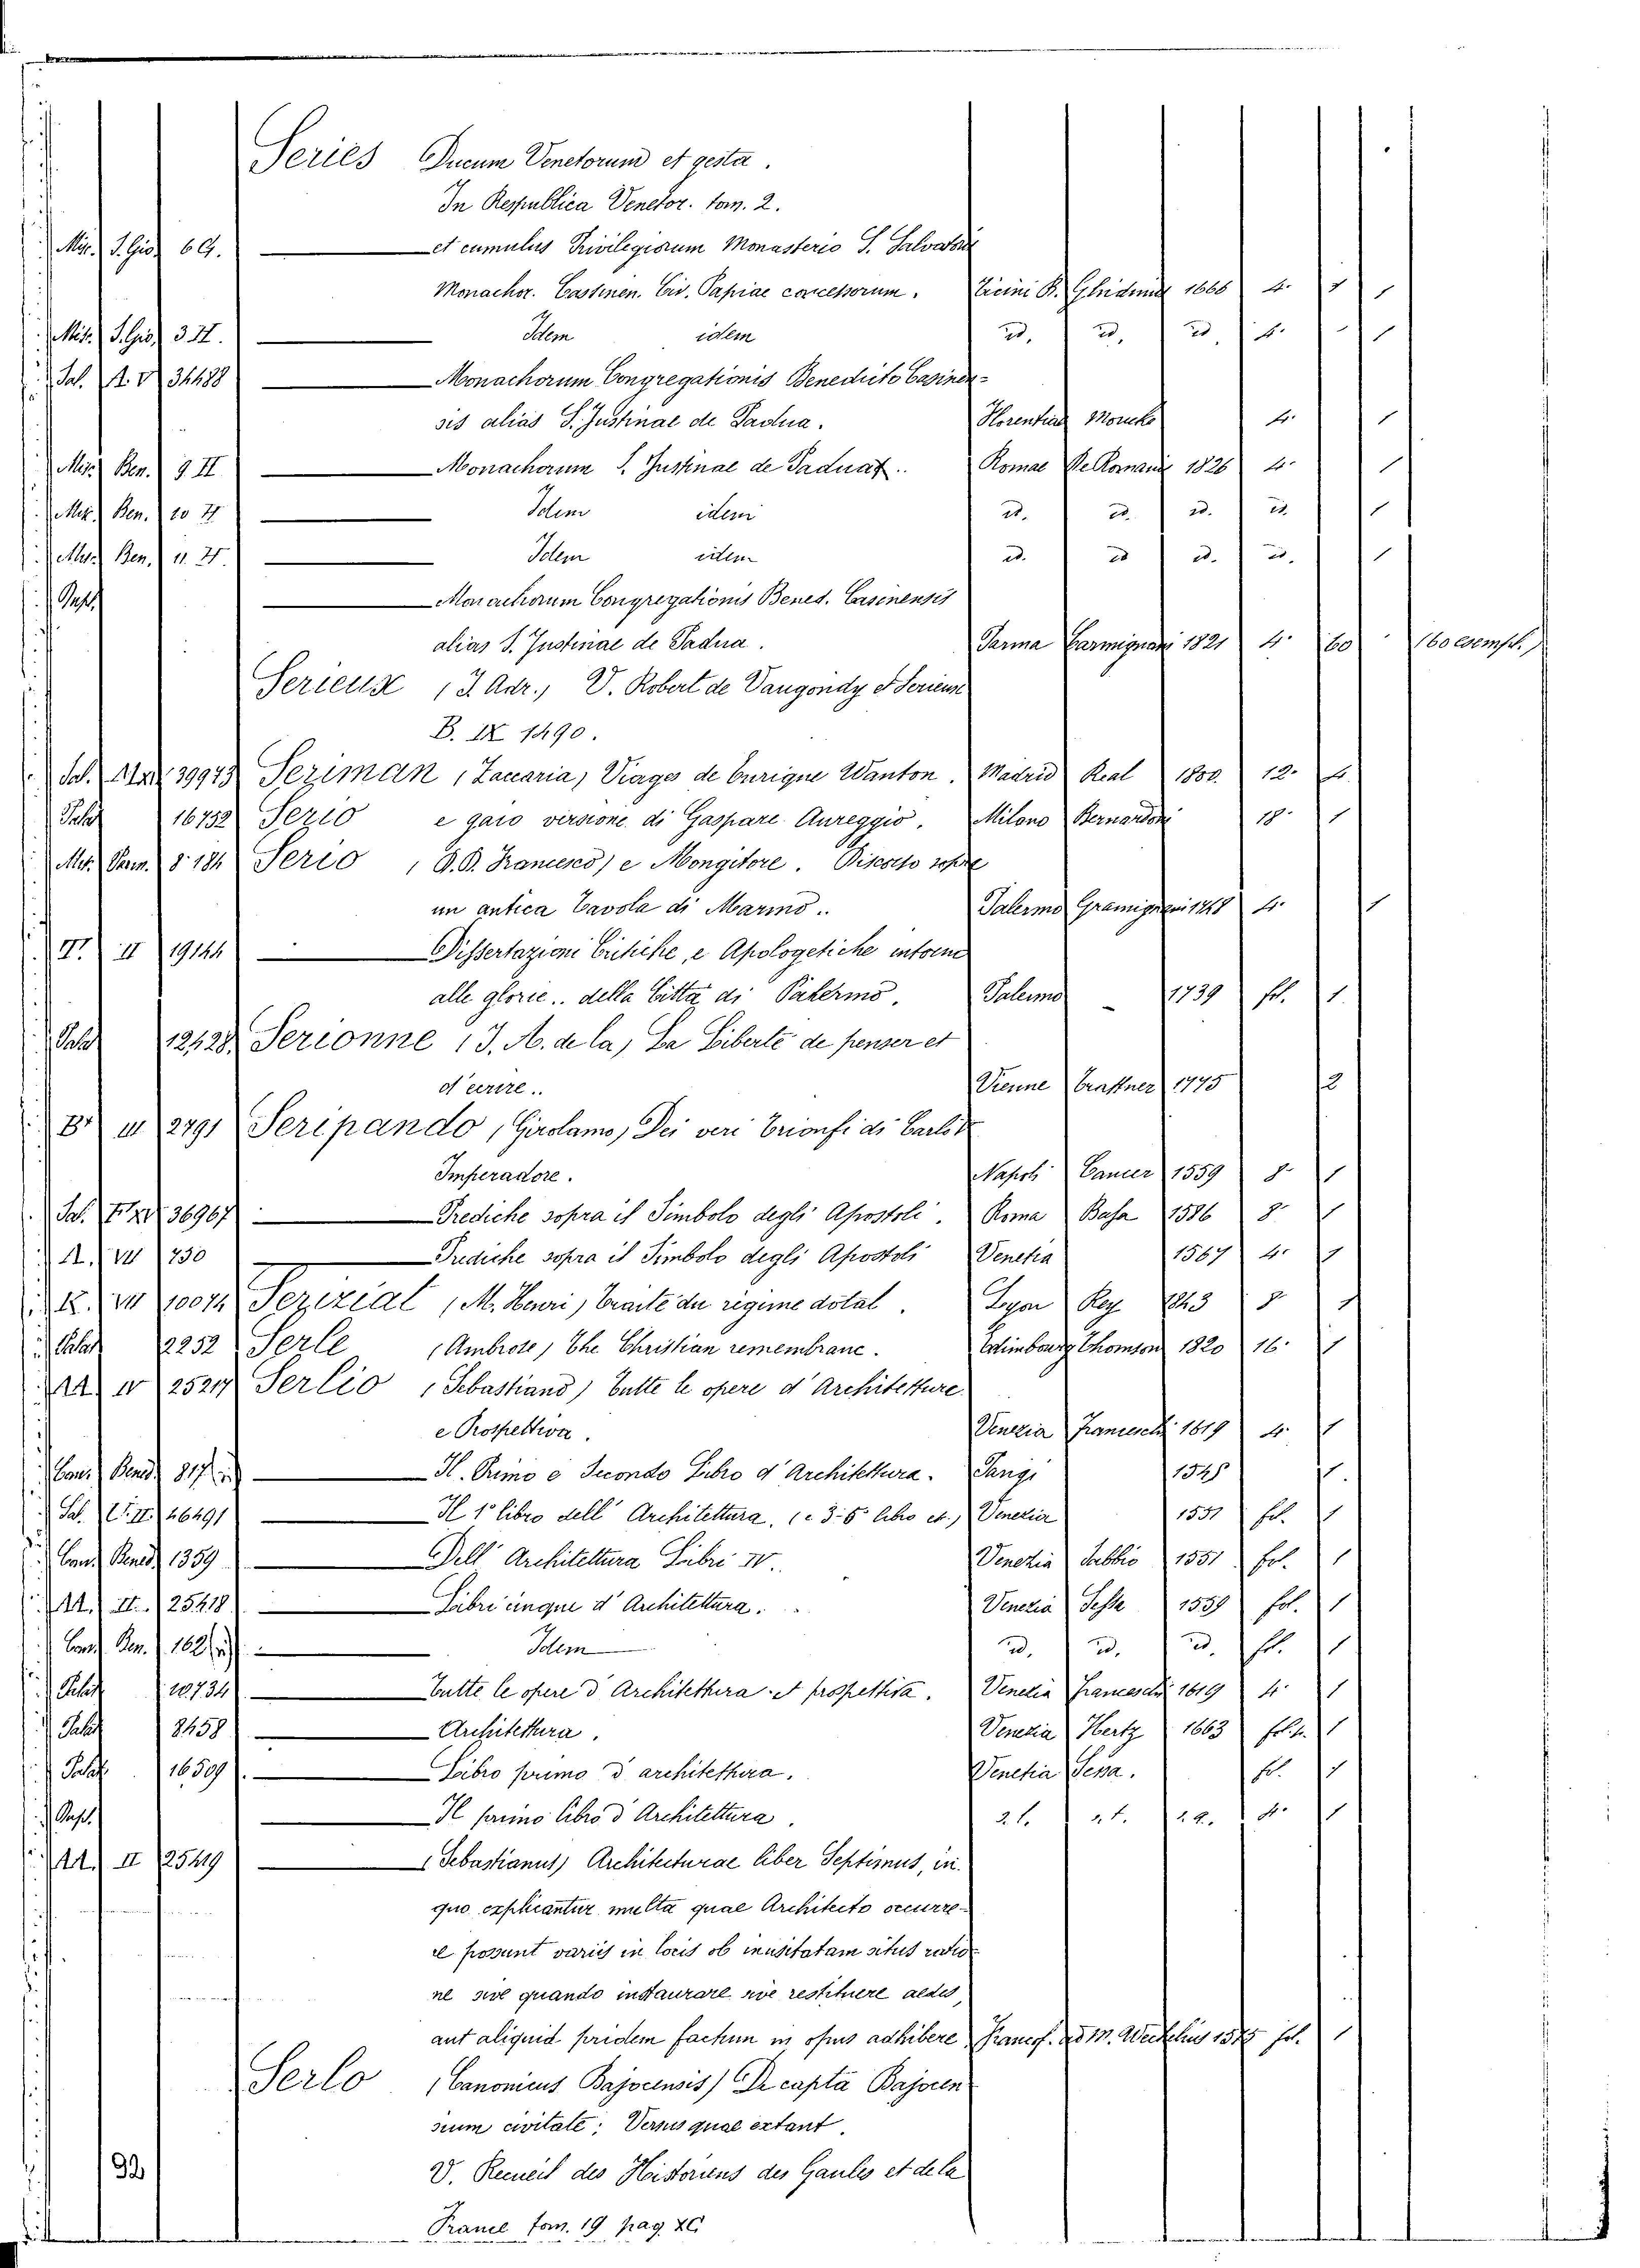 Series Ducum Venetorum et gesta.
In Respublica Venetor. tom. 2.
Mis. S. Gio. 6 G. et cumulus Privilegiorum Monasterio S. Salvatoris
Monachor. Cassinen. Civ. Papiae concessorum. Ticini 1665 4. 1
Mis. S. Gio. 3 Idem idem id. id. id. 4. 1
Pal. A. V 34488 Monachorum Congregationis Benedicto Casinen-
sis alias S. Justinae de Padua. Florentiae Moucke 4. 1
Mis. Ben. 9 II Monachorum S. Justinae de Paduae. Romae De Romanis 1826 4. 1
Mis. Ben. 10 Idem idem id. id. id. id. 1
Misc. Ben. 11 Idem idem id. id. id. id. 1
Dupl. Monachorum Congregationis Bened. Casinensis
alias S. Justinae de Padua. Parma Carmignani 1821 4. 160 160 esempl.
Serieux (J. Adr.) V. Robert de Vaugondy et Serieux
B. IX 1490.
Sal. 39943 Seriman (Zaccaria) Viages de Enrique Wanton. Madrid Real 1800. 12. 4
Palat 16452 Serio e gaio versione di Gaspare Aureggio. Milano Bernardoni 18. 1
Mis. Parm. 8. 184 Serio (D. Francesco) e Mongitore. Discorso sopra
un antica Tavola di Marmo.. Palermo Gramignani 1748 4. 1
II 19144 Dissertazioni Critiche, e Apologetiche intorno
alle glorie.. della Citta di Palermo. Palermo _ 1739 fol. 1
Palat 12428 Serionne (J. A. de la) La Liberté de penser et
d'ecrire.. Vienne Trattner 1775 2
B. III 2791 Seripando (Girolamo) Dei veri Trionfi di Carlo V
Imperadore. Napoli Cancer 1559 8. 1
Sal. 36967 Prediche sopra il Simbolo degli Apostoli. Roma Basa 1586 8. 1
A. VII 730 Prediche sopra il Simbolo degli Apostoli Venetia 1567 4. 1
K. VII 10074 Seriziat (M. Henri) Traité du régime dotal. Lyon Rey 1843 8 1
Palat 2252 Serle (Ambrose) The Christian remembranc. Edimbourg Thomson 1820 16. 1
AA IV 25217 Serlio (Sebastiano) Tutte le opere d'Architetture
e Prospettiva. Venezia Franceschi 1619 4. 1
Cans. Bened. 817 Il Primo e Secondo Libro d'Architettura. Parigi 1545 1
Sal. II. 46491 Il 1º libro dell'Architettura. (e 3-5 libro et.) Venezia 1551 fol. 1
Cans. Bened. 1359 Dell'Architettura Libri IV.. Venezia Sabbio 1551 fol. 1
AA. II. 25418 Libri cinque d'Architettura. Venezia Sessa 1559 fol. 1
Cans. Ben. 162 Idem id. id. id. fol. 1
Palat 10734 Tutte le opere d'Architettura et prospettiva. Venezia Franceschi 1619 4. 1
Palat 8458 Architettura. Venezia Hertz 1663 fol. 1
Palat 16509 Libro primo d'architettura. Venetia Sessa. fol. 1
Dupl. Il primo libro d'Architettura. s. l. s. t. s. a. 4. 1
AA. II 25419 (Sebastianus) Architecturae liber Septimus, in
quo explicantur multa quae Architecto occurre-
re possunt variis in locis ob inusitatam situs ratio
ne sive quando instaurare sive restituere aedes,
aut aliquid pridem factum in opus adhibere Francof. ad M. Wechelus 1575 fol. 1
Serlo (Canonicus Bajocensis) De capta Bajocen
sium civitate; Versus quae extant.
V. Recueil des Historiens des Gaules et de la
France tom. 19 pag.
92